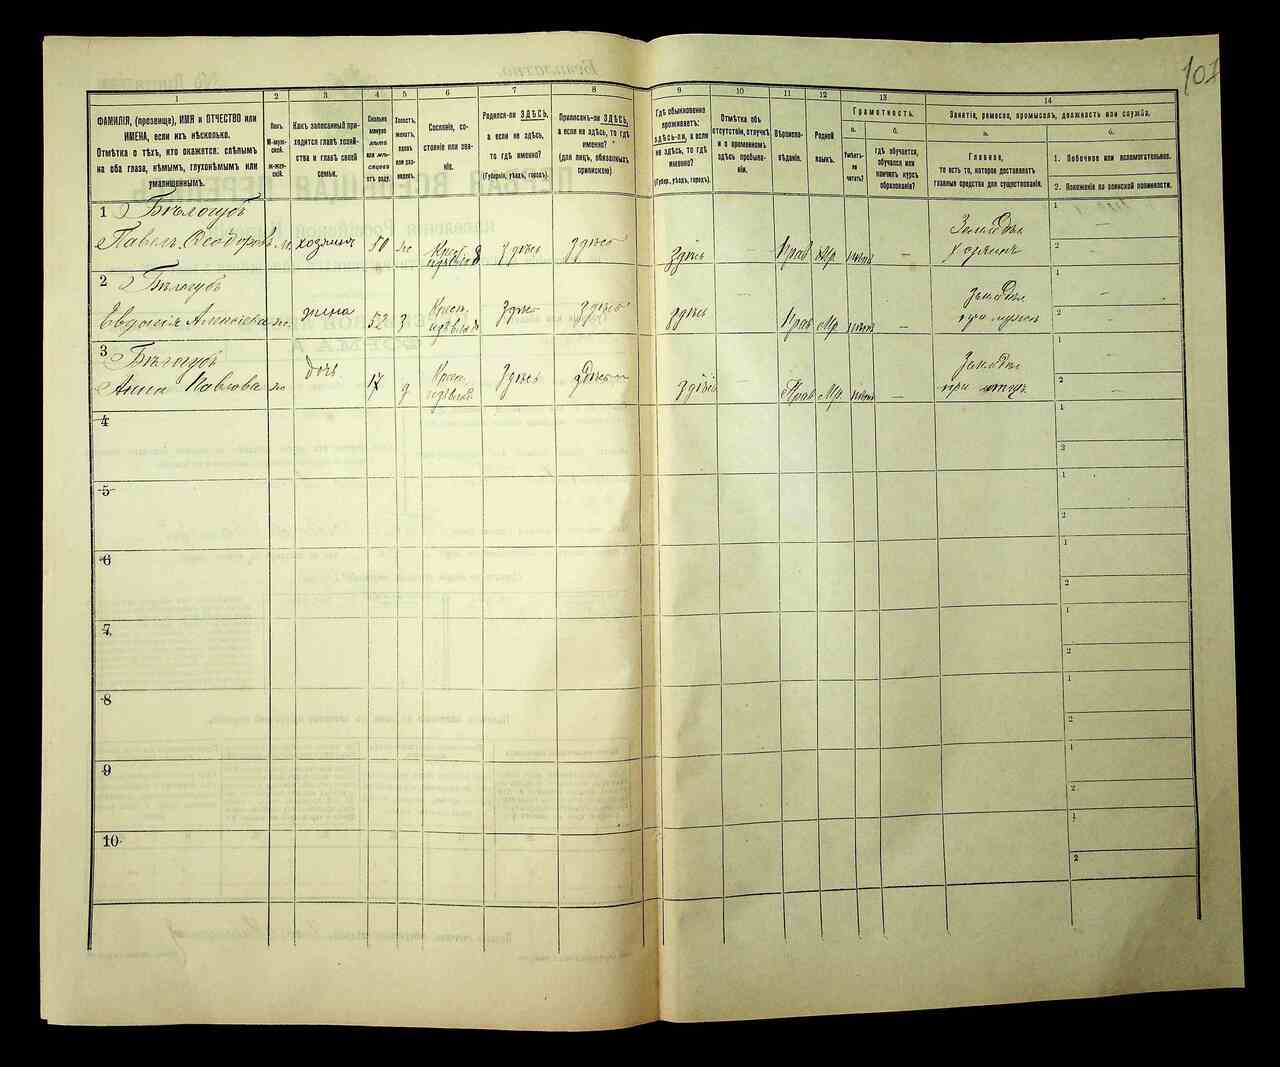 101
1
2
3
4
5
6
7
8
9
10
11
12
13
14
ФАМИЛІЯ, (прозвище), ИМЯ и ОТЧЕСТВО или
ИМЕНА, если ихъ нѣсколько.
Отмѣтка о тѣхъ, кто окажется: слѣпымъ
на оба глаза, нѣмымъ, глухонѣмымъ или
умалишеннымъ.
Полъ.
М-муж-
ской.
ж-жен-
скій.
Какъ записанный при-
ходится главѣ хозяй-
ства и главѣ своей
семьи.
Сколько
минуло
лѣтъ
или мѣ-
сяцевъ
отъ роду.
Холостъ,
женатъ,
вдовъ
или раз-
веденъ.
Сословіе, со-
стояніе или зва-
ніе.
Родился-ли ЗДѢСЬ,
а если не здѣсь,
то гдѣ именно?
(Губернія, уѣздъ, городъ).
Приписанъ-ли ЗДѢСЬ,
а если не здѣсь, то гдѣ
именно?
(для лицъ, обязанныхъ
припискою)
Гдѣ обыкновенно
проживаетъ:
здѣсь-ли, а если
не здѣсь, то гдѣ
именно?
(Губернія, уѣздъ, городъ).
Отмѣтка объ
отсутствіи, отлучкѣ
и о временномъ
здѣсь пребыва-
ніи.
Вѣроиспо-
вѣданіе.
Родной
языкъ.
Грамотность.
а.
б.
Умѣетъ-
ли
читать?
гдѣ обучается,
обучался или
кончилъ курсъ
образованія?
Занятіе, ремесло, промыселъ, должность или служба.
а.
б.
Главное,
то есть то, которое доставляетъ
главныя средства для существованія.
1. Побочное или вспомогательное.
2. Положеніе по воинской повинности.
1 Бѣлогубъ
Павелъ Ѳеодоровъ м хозяинъ 50 ж Крест. здѣсь здѣсь здѣсь — Прав Мр. — Землед
хозяинъ
1 —
2 —
2 Бѣлогубъ
Евдокія Алексѣева ж. жена 52 з Крест. здѣсь здѣсь здѣсь — Прав Мр. — Землед
при мужѣ
1 —
2 —
3 Бѣлогубъ
Анна Павлова ж дочь 17 д Крест. здѣсь здѣсь здѣсь — Прав Мр. — Землед
при отцѣ
1 —
2 —
4
1
2
5
1
2
6
1
2
7
1
2
8
1
2
9
1
2
10
1
2